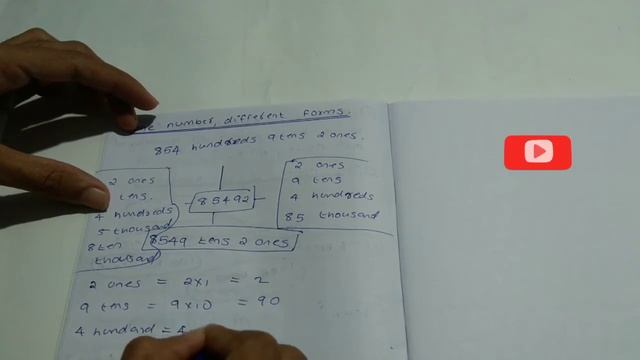 number, different forms.
854 hundreds 9 tens 2 ones.
2 ones
tens.
4 hundreds
5 thousand
8 ten
thousand
85492
2 ones
9 tens
4 hundreds
85 thousand
8549 tens 2 ones
2 ones = 2x1 = 2
9 tens = 9x10 = 90
4 hundard = 4